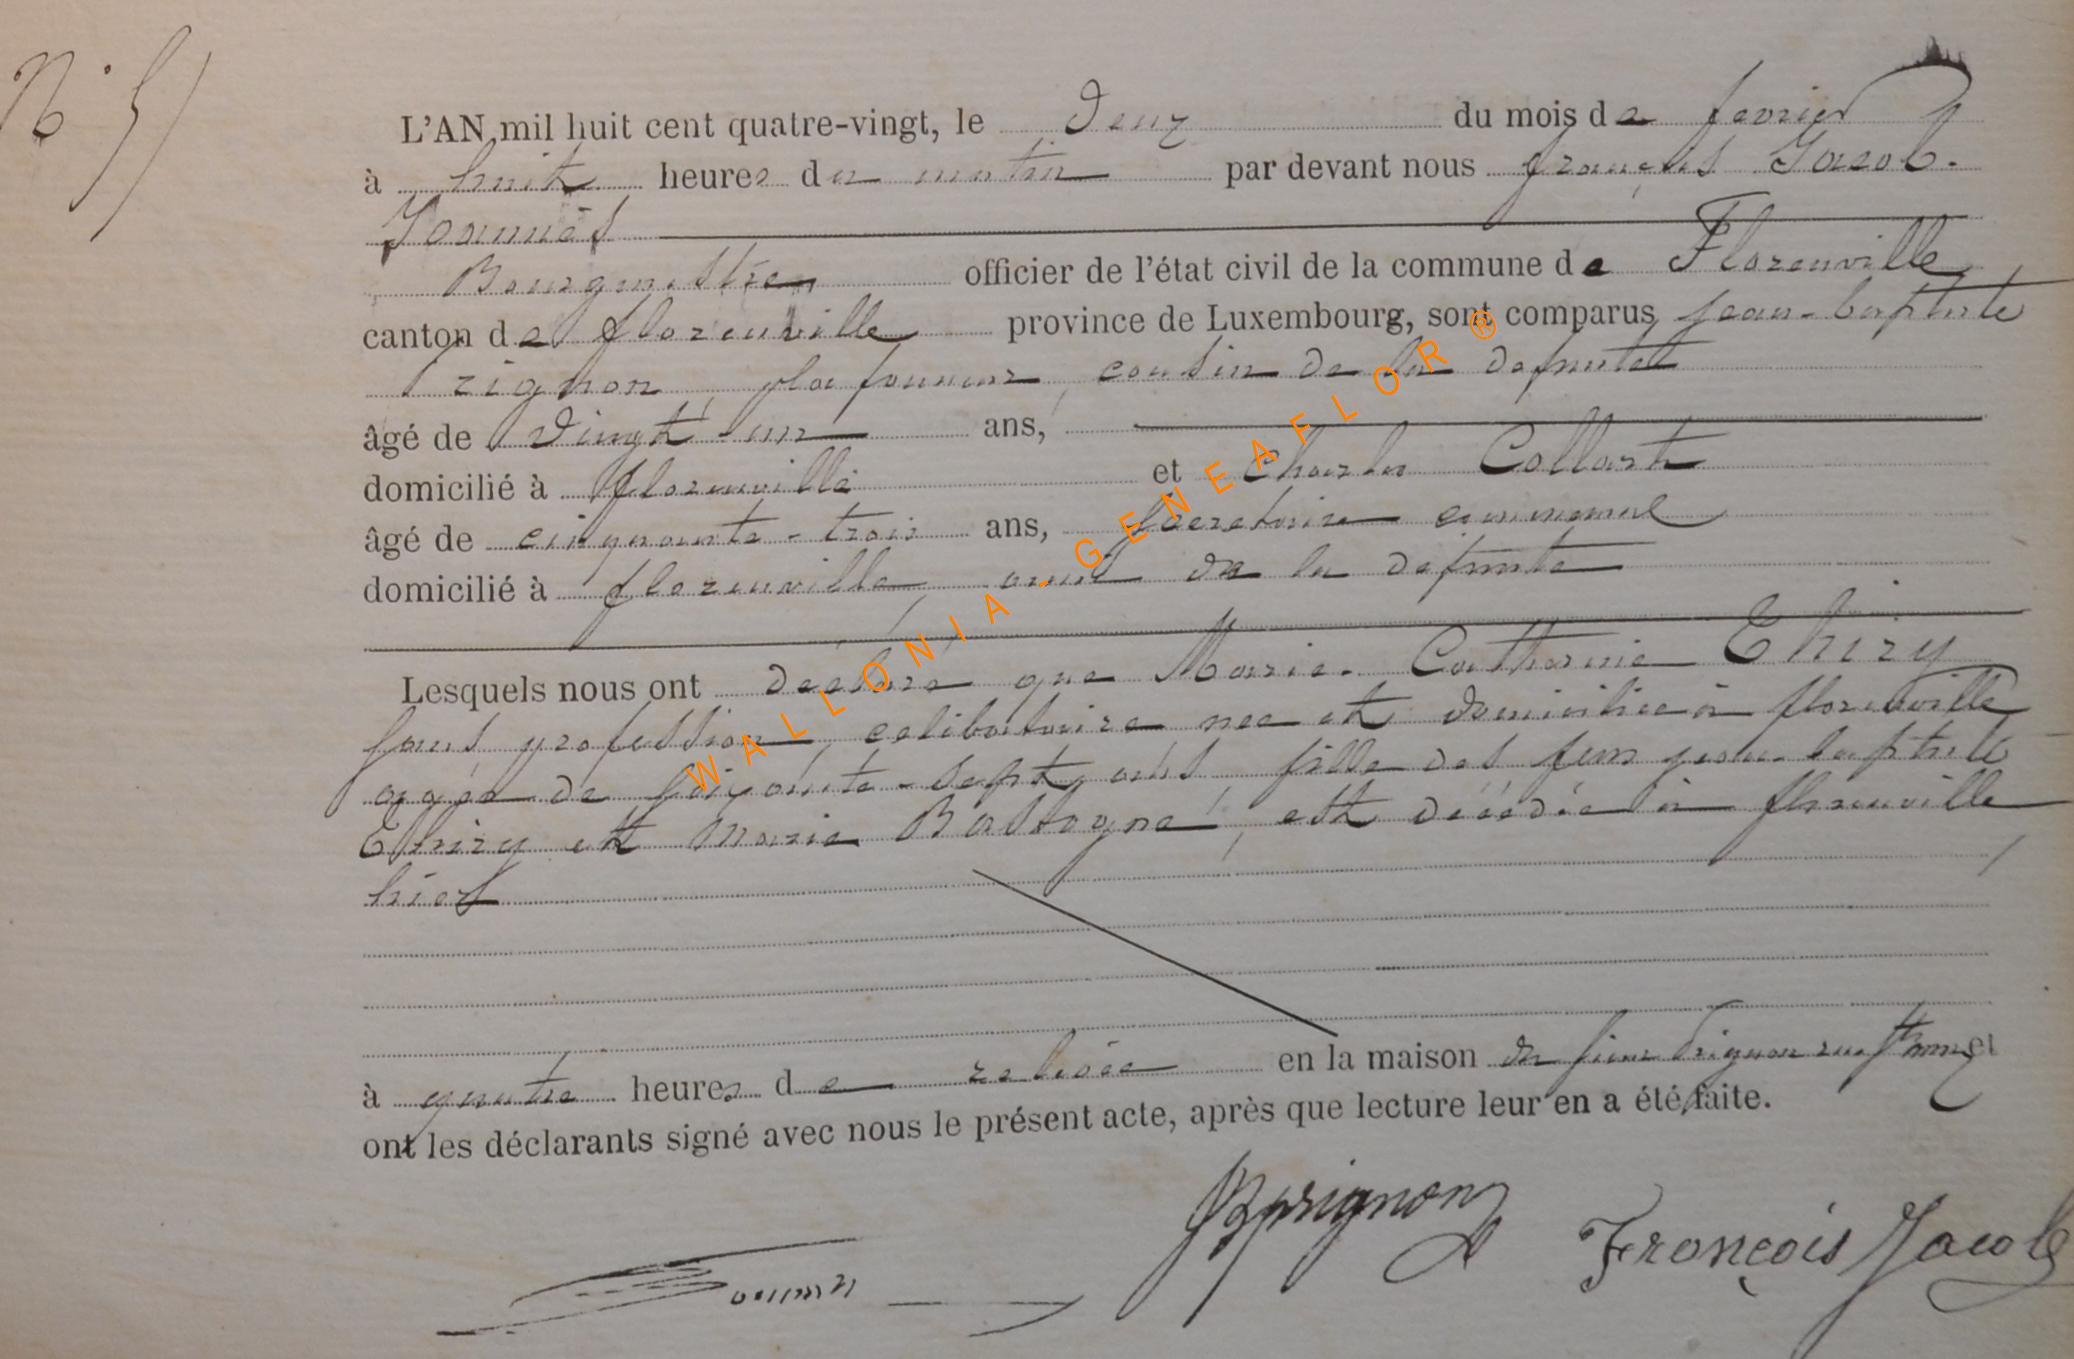 N° 5
L'AN mil huit cent quatre-vingt, le Deux du mois de fevrier
à huit heures du matin par devant nous françois Jacob.
Joannès
Bourgmestre officier de l'état civil de la commune de Florenville
canton de florenville province de Luxembourg, sont comparus jean-baptiste
Prignon plafonneur, cousin de la defunte
âgé de vingt-un ans,
domicilié à florenville et Charles Collart
âgé de cinquante-trois ans, secretaire communal
domicilié à florenville, ami de la défunte
Lesquels nous ont déclaré que Marie-Catherine Thiry
sans profession, celibataire née et domiciliée à florenville
agée de soixante-sept ans fille des feux jean-baptiste
Thiry et Marie Bastogne, est décédée à florenville
hier
à quatre heures de relevée en la maison du sieur Prignon rue et
ont les déclarants signé avec nous le présent acte, après que lecture leur en a été faite.
JBPrignon
François Jacob
Joannès
WALLONIA - GENEAFLOR ®